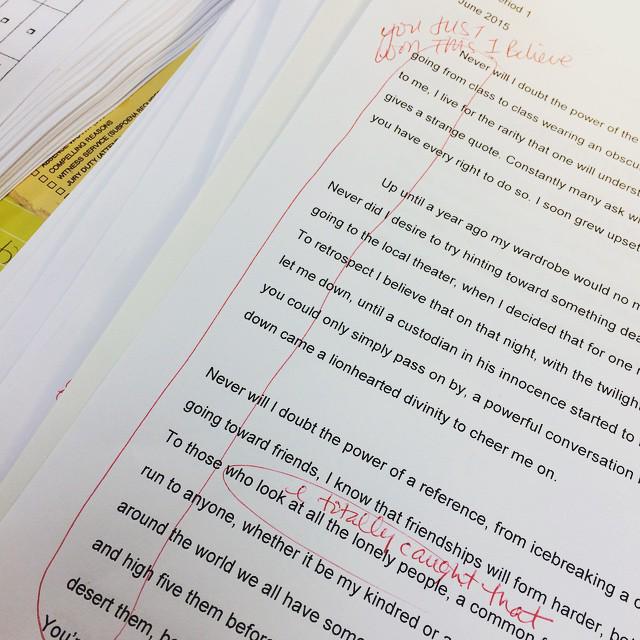 June 2015
you just
won THIS I Believe
Never will I doubt the power of the
going from class to class wearing an obscu
to me. I live for the rarity that one will unders
gives a strange quote. Constantly many ask w
you have every right to do so. I soon grew upset
Up until a year ago my wardrobe would no m
Never did I desire to try hinting toward something dea
going to the local theater, when I decided that for one n
To retrospect I believe that on that night, with the twilight
let me down, until a custodian in his innocence started to
you could only simply pass on by, a powerful conversation
down came a lionhearted divinity to cheer me on.
Never will I doubt the power of a reference, from icebreaking a c
going toward friends, I know that friendships will form harder, be
To those who look at all the lonely people, a common
I totally caught that
run to anyone, whether it be my kindred or a
around the world we all have some
and high five them before
desert them, be
You're
COMPELLING REASONS
WITNESS SERVICE (SUBPOENA REQUI
JURY DUTY (ATTA